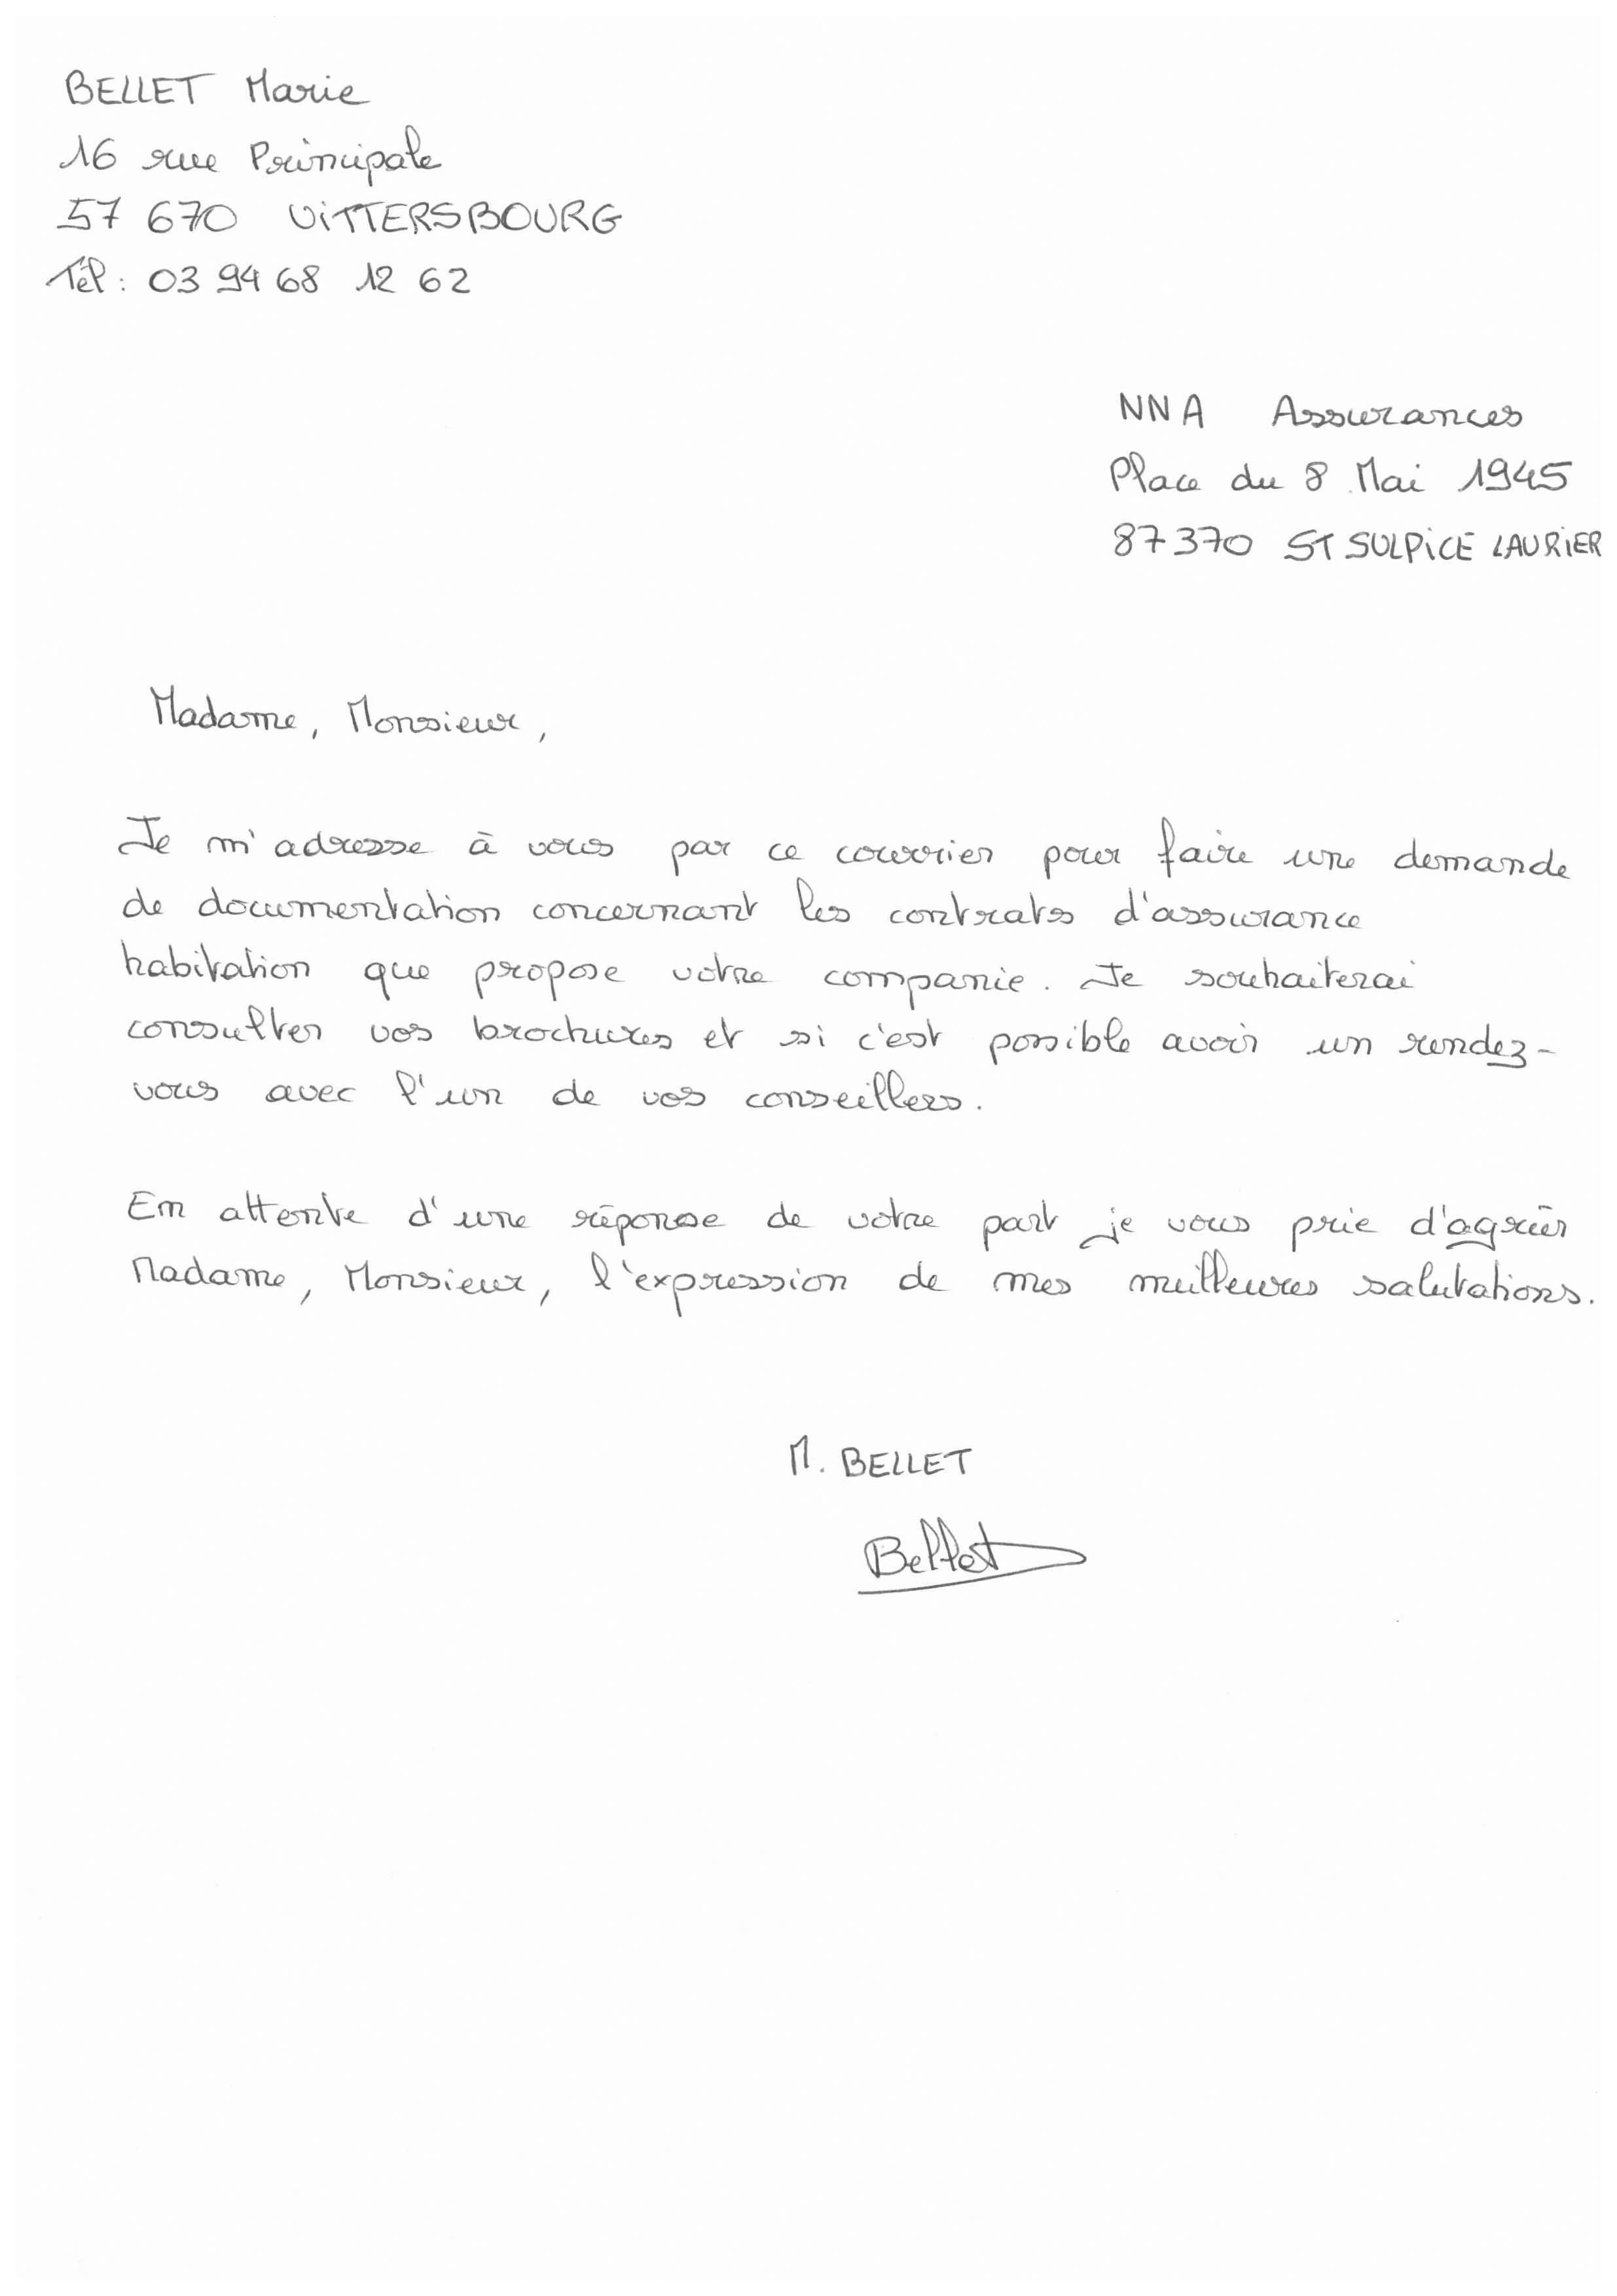 BELLET Marie
16 rue Principale
57 670 ViTTERSBOURG
Tél : 03 94 68 12 62
NNA Assurances
Place du 8 Mai 1945
87370 ST SULPiCE LAURiER
Madame, Monsieur,
Je m'adresse à vous par ce courrier pour faire une demande
de documentation concernant les contrats d'assurance
habitation que propose votre companie. Je souhaiterai
consulter vos brochures et si c'est possible avoir un rendez-
vous avec l'un de vos conseillers.
En attente d'une réponse de votre part je vous prie d'agréér
Madame, Monsieur, l'expression de mes meilleures salutations.
M. BELLET
Bellet